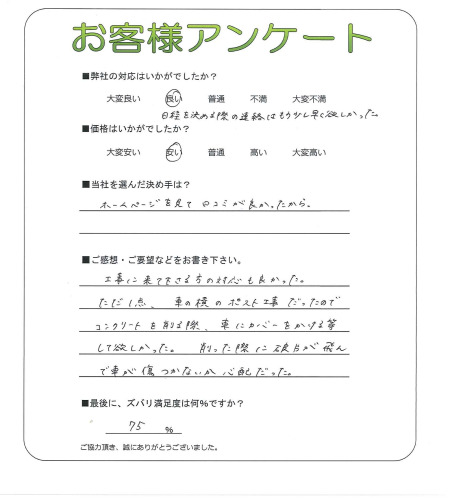 お客様アンケート
■弊社の対応はいかがでしたか？
大変良い 良い 普通 不満 大変不満
日程を決める際の連絡はもう少し早く欲しかった。
■価格はいかがでしたか？
大変安い 安い 普通 高い 大変高い
■当社を選んだ決め手は？
ホームページを見て 口コミが良かったから。
■ご感想・ご要望などをお書き下さい。
工事に来て下さる方の対応も良かった。
ただ1点、車の横のポスト工事だったので
コンクリートを削る際、車にカバーをかける等
して欲しかった。 削った際に破片が飛ん
で車が傷つかないか心配だった。
■最後に、ズバリ満足度は何％ですか？
75 ％
ご協力頂き、誠にありがとうございました。